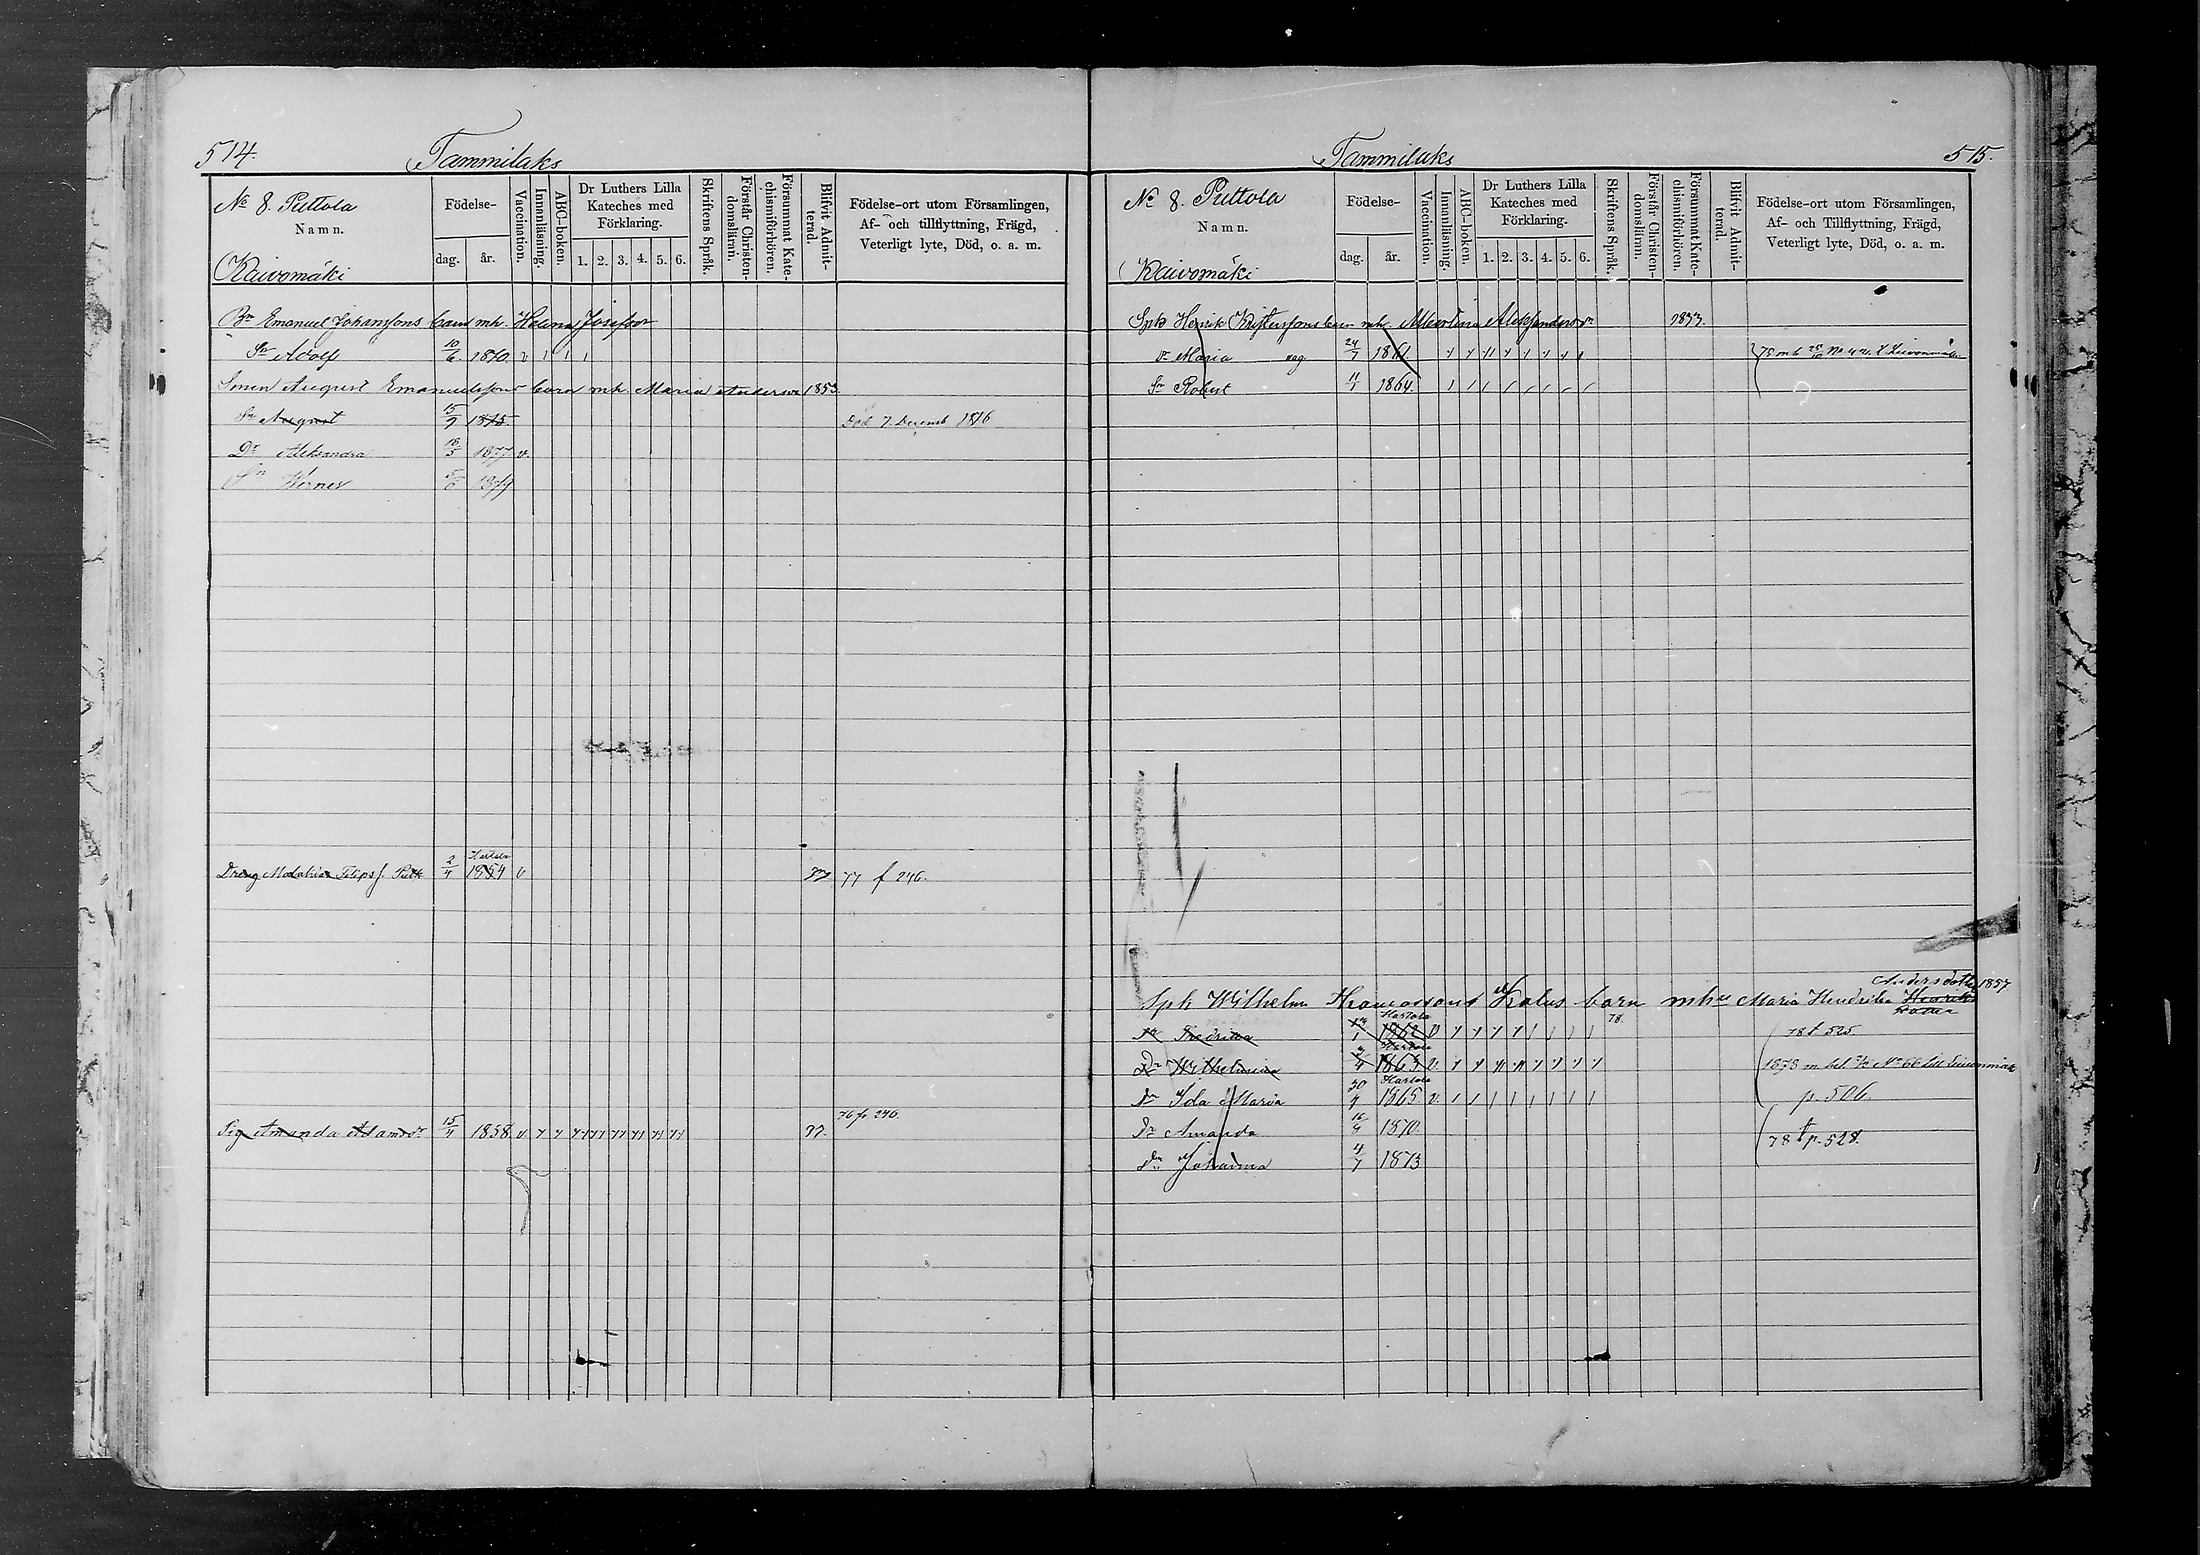 514. Tammilaks
№ 8. Puttola
Namn.
Kaivomäki
Födelse-
dag. år.
Vaccination.
Innanläsning.
ABC-boken.
Dr Luthers Lilla
Kateches med
Förklaring.
1. 2. 3. 4. 5. 6.
Skriftens Språk.
Förstår Christen-
domsläran.
Försummat Kate-
chismiförhören.
Blifvit Admit-
terad.
Födelse-ort utom Församlingen,
Af- och tillflyttning, Frägd,
Veterligt lyte, Död, o. a. m.
Bn Emanuel Johanssons barn mh. Helena Josefsdr
Sn Adolf 10/6 1870 v
Sonen August Emanuelssons barn mh. Maria Andersdr 1853
Sn August 15/9 1875. Död 7 Decemb 1876
Dr Aleksandra 18/5 1877 v.
Sn Werner
Hartola
Dreng Malakias Filips f. 2/4 1854 v 77 77 f 246.
76 fr 246.
Pig Amanda Adamsdr 15/4 1858 v 77.
Tammilaks 515.
№ 8. Puttola
Namn.
Kaivomäki
Födelse-
dag. år.
Vaccination.
Innanläsning.
ABC-boken.
Dr Luthers Lilla
Kateches med
Förklaring.
1. 2. 3. 4. 5. 6.
Skriftens Språk.
Förstår Christen-
domsläran.
Försummat Kate-
chismiförhören.
Blifvit Admit-
terad.
Födelse-ort utom Församlingen,
Af- och Tillflyttning, Frägd,
Veterligt lyte, Död, o. a. m.
Spk Henrik Kristerssons barn mh. Albertina Aleksandersdr 1833.
Dr Maria 24/7 1861.
Sn Robert 11/1 1864.
Andersdotter 1857
Spk Wilhelm barn mh Maria Hendrika Henriks
dotter
Hartola 78.
Dr Fredrika 1862 v 78 f. 525.
Hartola
Dr Wilhelmina 1863 v. 1878 m bet
Hartola
Dr Ida Maria 30/4 1865 v. p. 506.
Dr Amanda 16/9 1870. 78 f p. 528.
Dr Johanna 4/7 1873